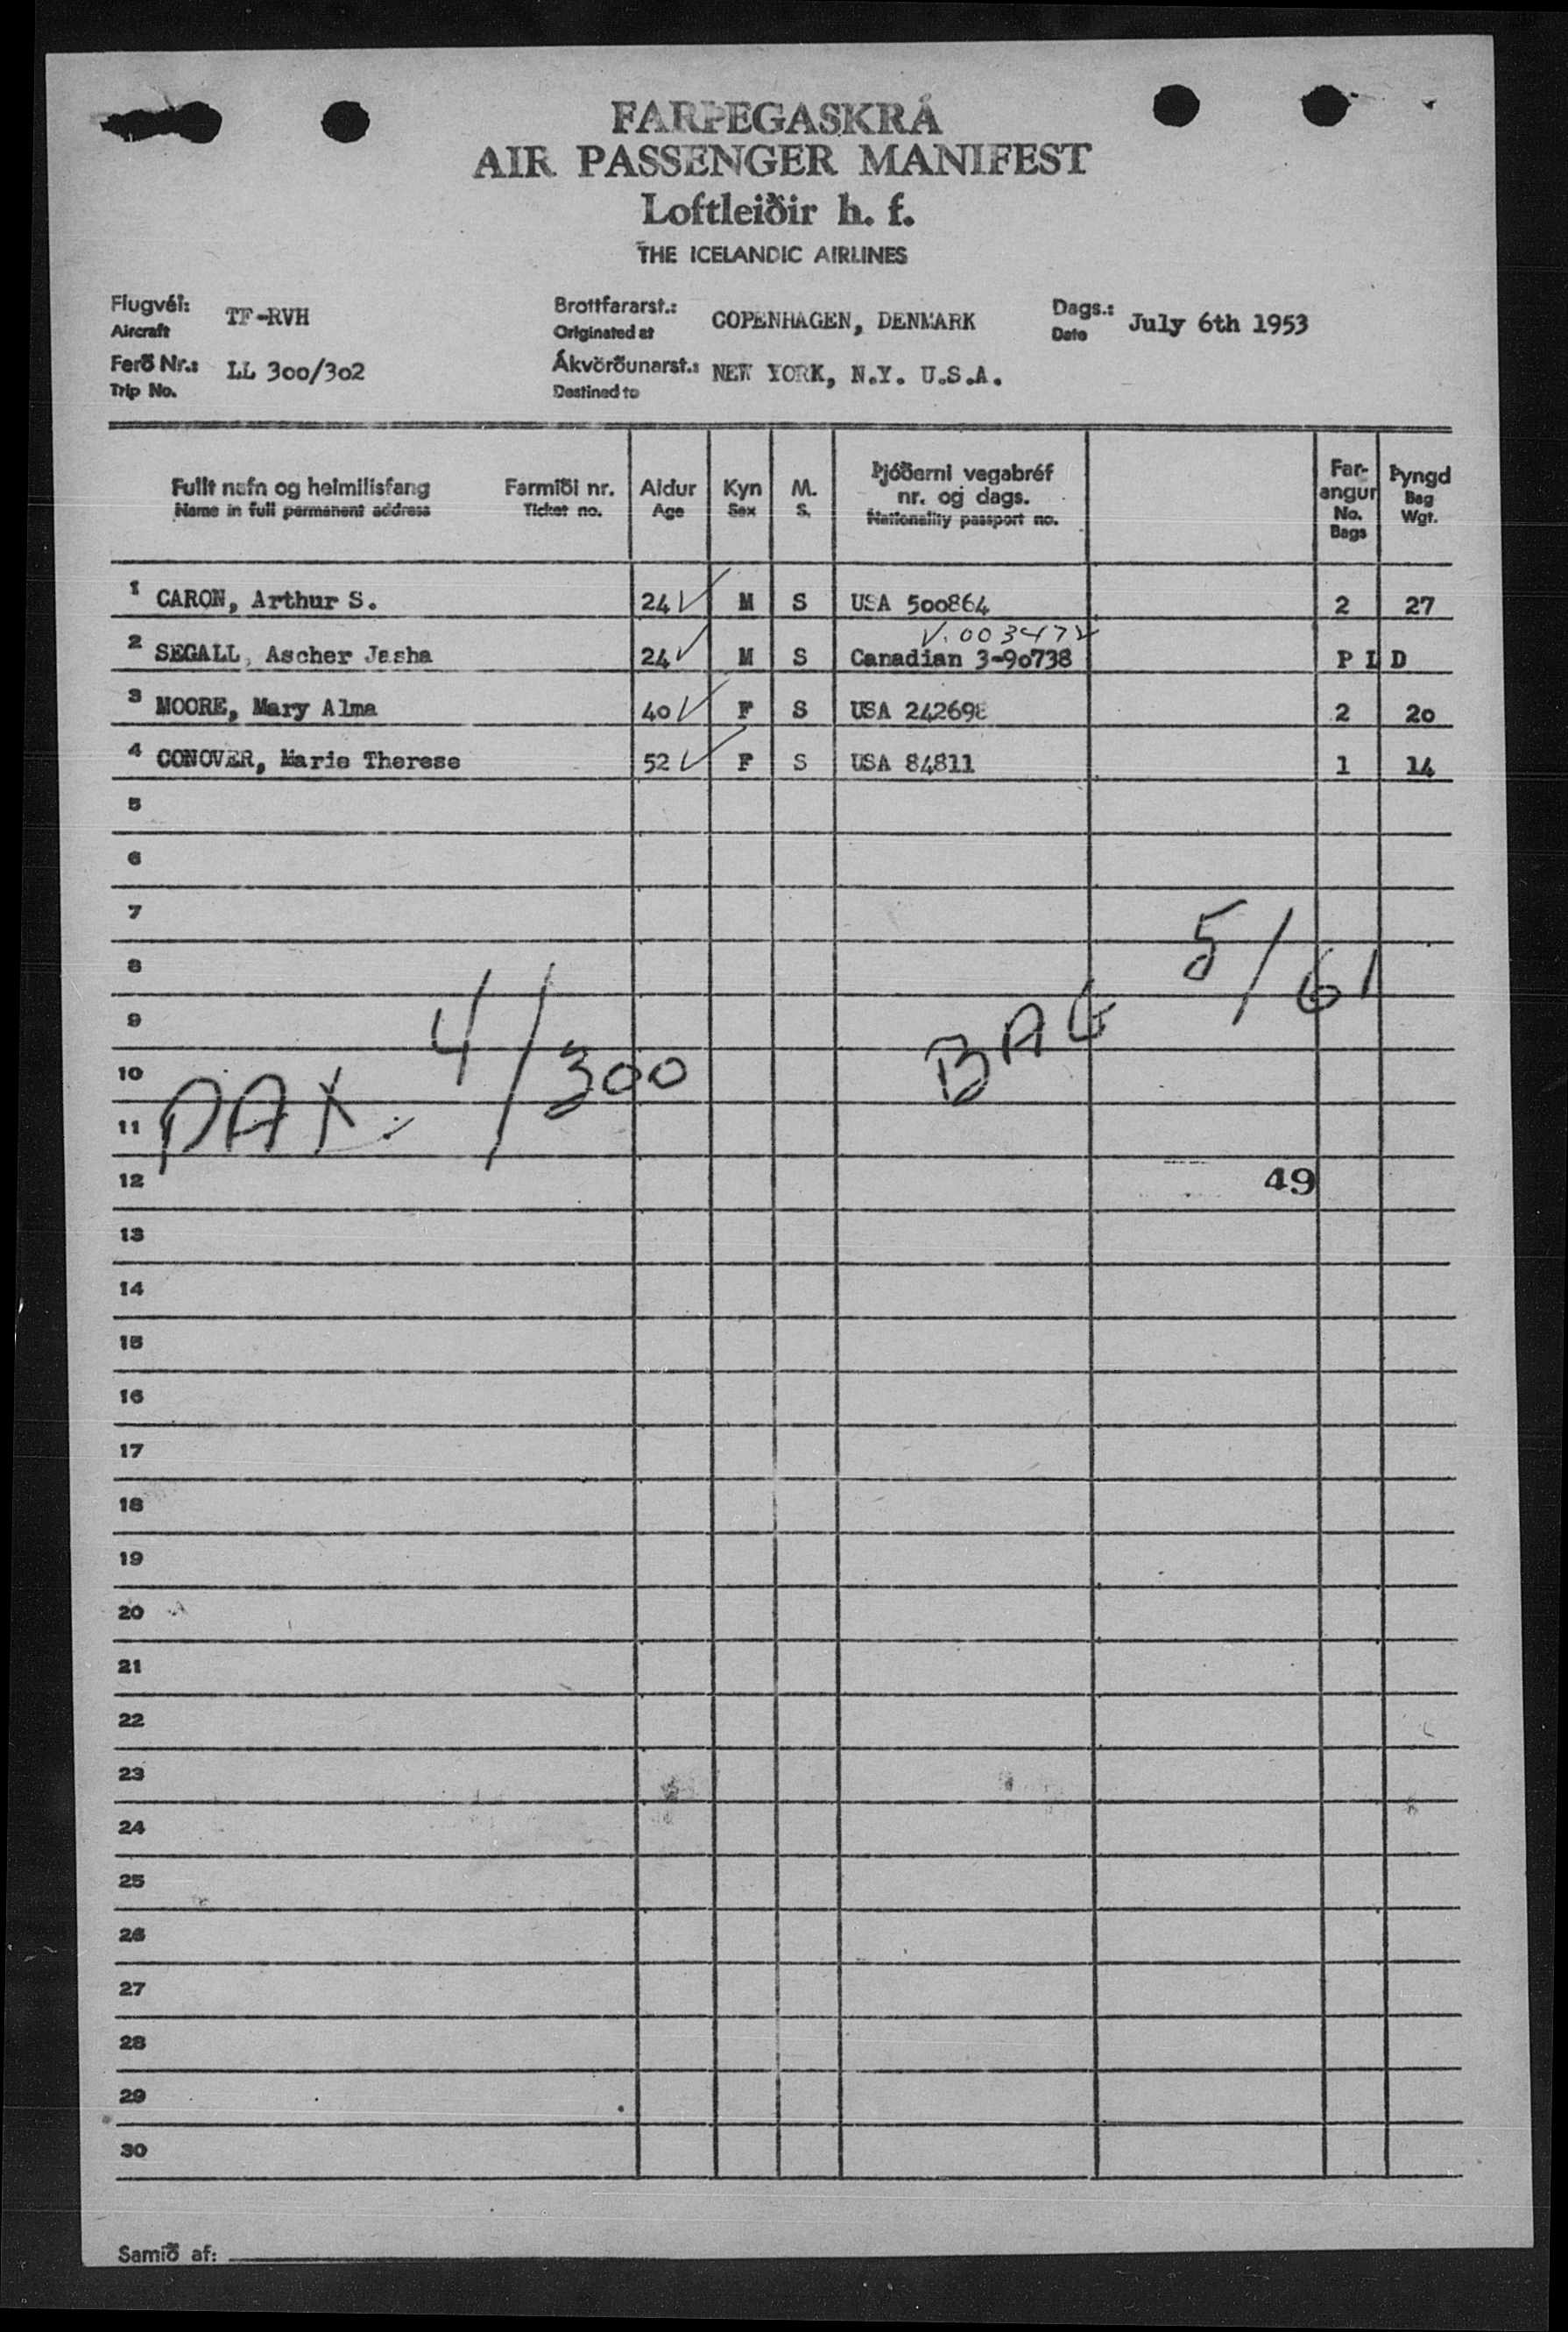 FARÞEGASKRÁ
AIR PASSENGER MANIFEST
Loftleiðir h. f.
THE ICELANDIC AIRLINES
Flugvél: TF-RVH Brottfararst.: COPENHAGEN, DENMARK Dags.: July 6th 1953
Aircraft Originated at Date
Ferð Nr.: LL 300/302 Ákvörðunarst.: NEW YORK, N.Y. U.S.A.
Trip No. Destined to
Fullt nafn og heimilisfang Farmiði nr. Aldur Kyn M. Þjóðerni vegabréf nr. og dags. Farangur Þyngd
Name in full permanent address Ticket no. Age Sex S. Nationality passport no. No. Bags Bag Wgt.
1 CARON, Arthur S. 24 M S USA 500864 2 27
V. 003472
2 SEGALL, Ascher Jasha 24 M S Canadian 3-90738 P L D
3 MOORE, Mary Alma 40 F S USA 242698 2 20
4 CONOVER, Marie Therese 52 F S USA 84811 1 14
5
6
7
8
9
10
11
PAX. 4/300 BAG 5/61
12 49
13
14
15
16
17
18
19
20
21
22
23
24
25
26
27
28
29
30
Samið af: